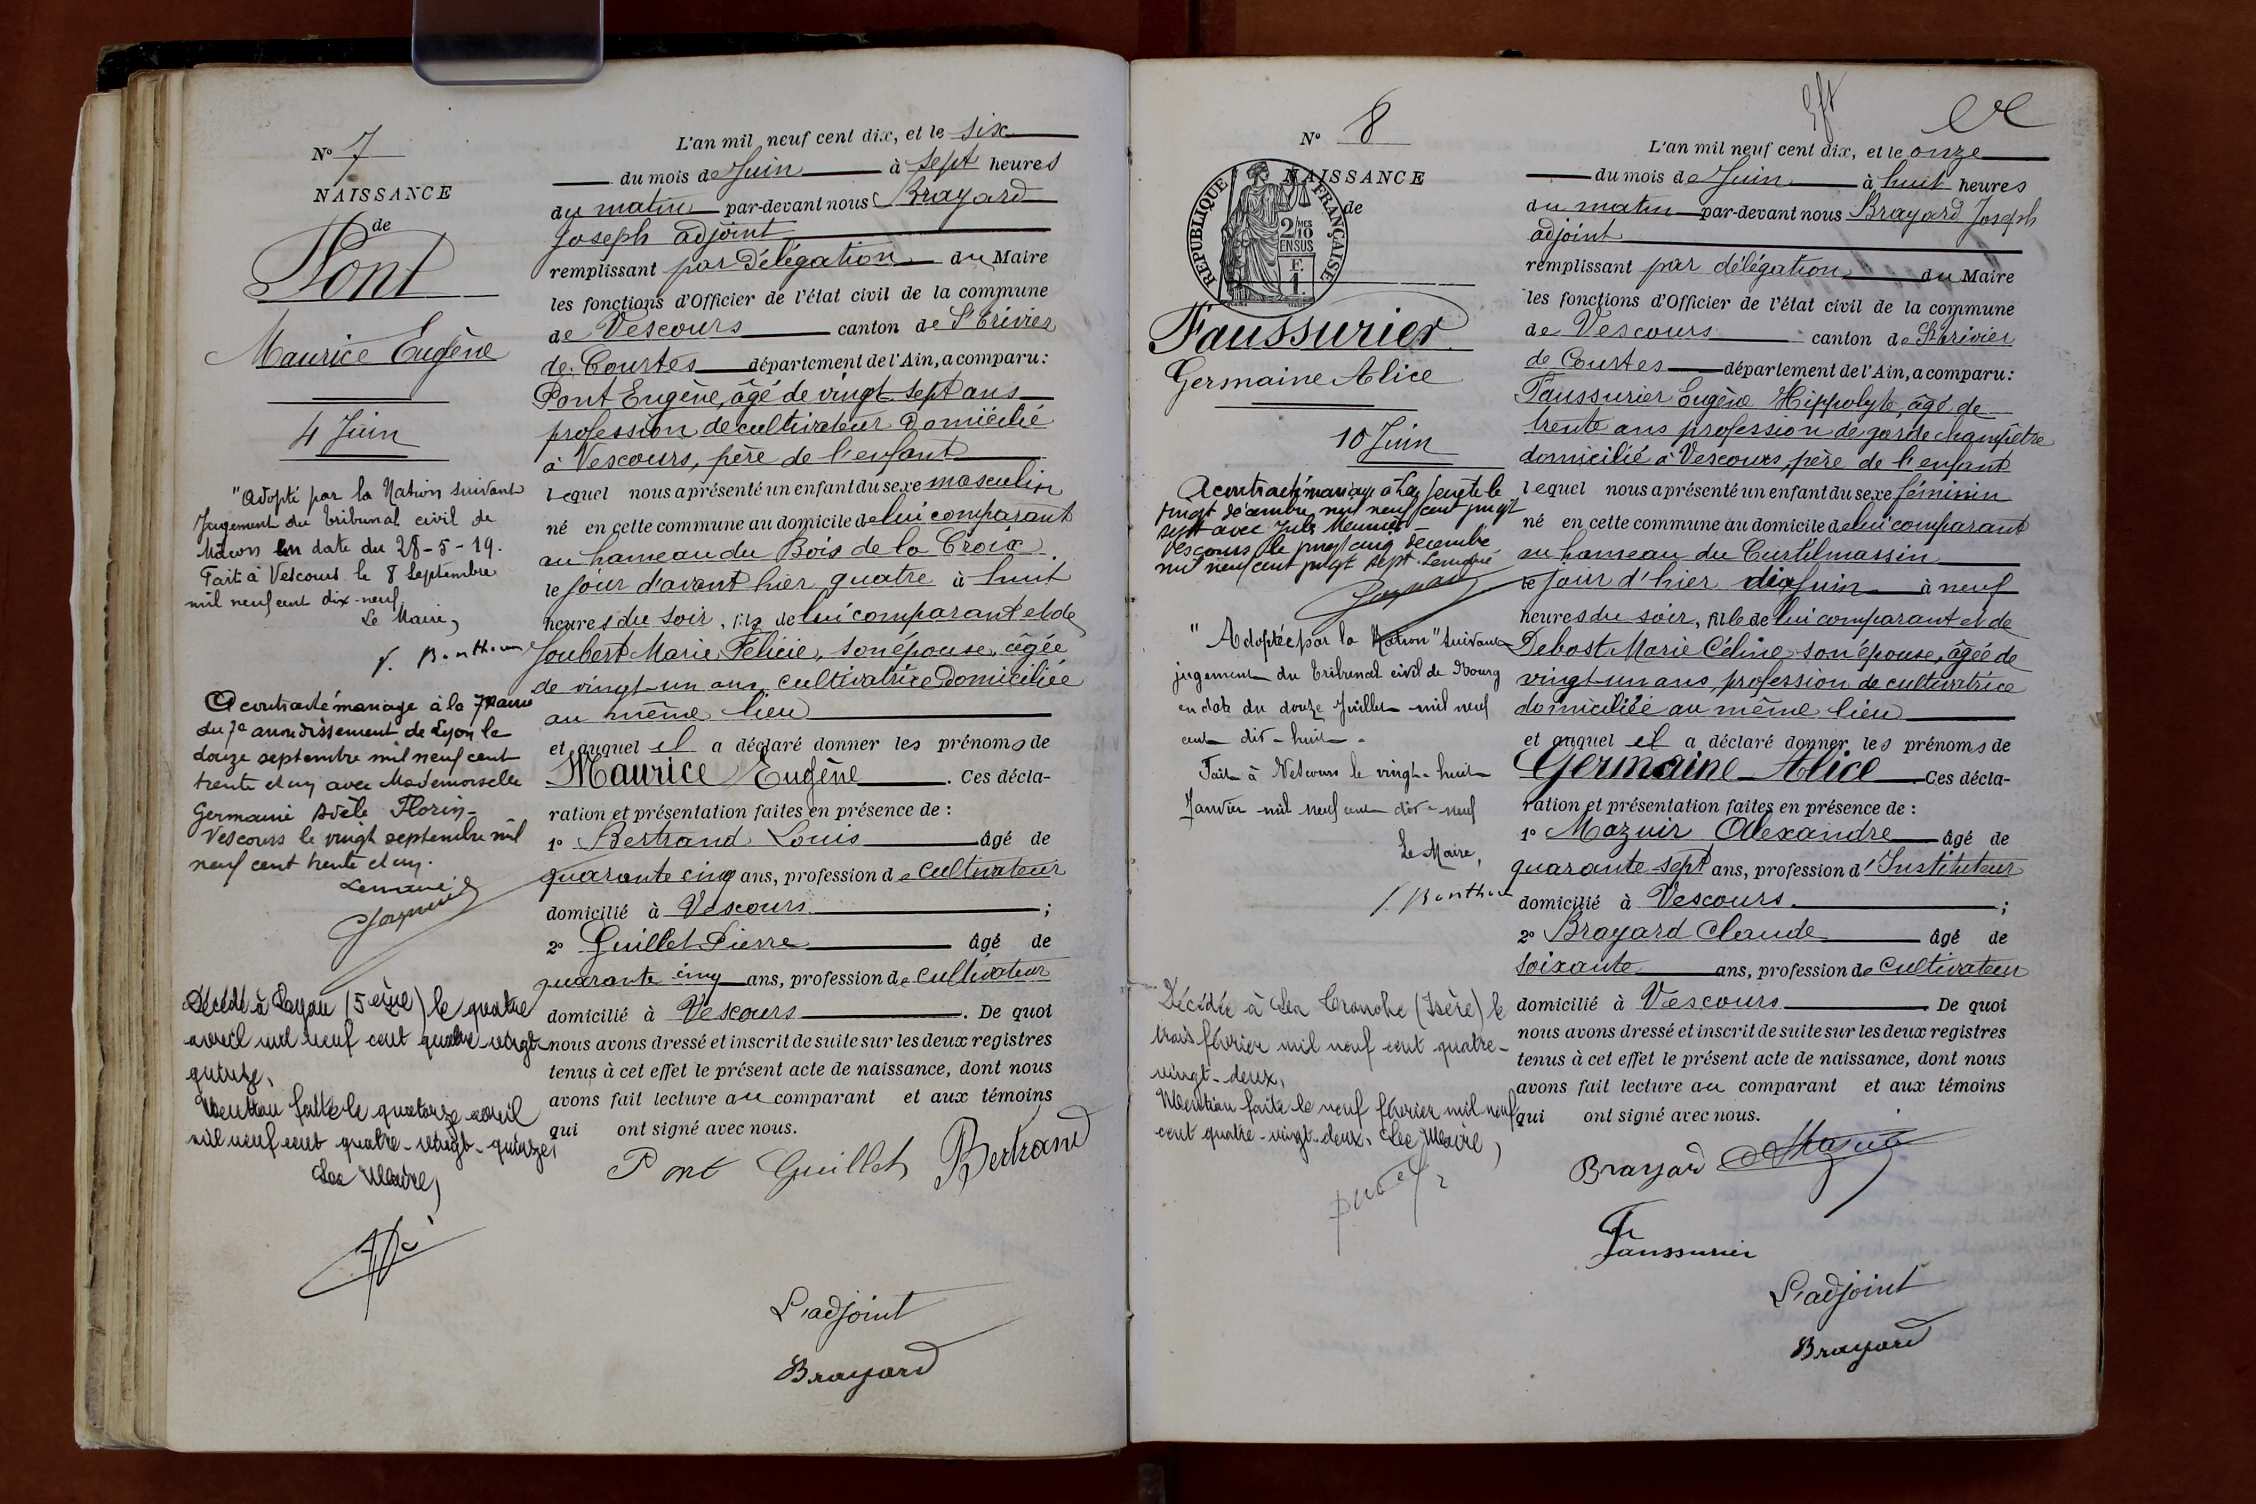 N° 7
NAISSANCE
de
Pont
Maurice Eugène
4 Juin
"Adopté par la Nation suivant
Jugement du tribunal civil de
Mâcon en date du 28-5-19.
Fait à Vescours le 8 Septembre
mil neuf cent dix-neuf,
Le Maire,
A contracté mariage à la Mairie
du 7e arrondissement de Lyon le
douze septembre mil neuf cent
trente et un avec Mademoiselle
Germaine Adèle Florin-
Vescours le vingt septembre mil
neuf cent trente et un.
Le maire
Décédé à Lyon (5ème) le quatre
avril mil neuf cent quatre-vingt-
quinze,
Mention faite le quatorze avril
mil neuf cent quatre-vingt-quinze,
Le Maire,
L'an mil neuf cent dix, et le six
du mois de Juin à sept heures
du matin par-devant nous Brayard
Joseph adjoint
remplissant par délégation du Maire
les fonctions d'Officier de l'état civil de la commune
de Vescours canton de St Trivier
de Courtes département de l'Ain, a comparu:
Pont Eugène, âgé de vingt sept ans
profession de cultivateur domicilié
à Vescours, père de l'enfant
lequel nous a présenté un enfant du sexe masculin
né en cette commune au domicile de lui comparant
au hameau du Bois de la Croix.
le jour d'avant hier quatre à huit
heures du soir, fils de lui comparant et de
Joubert Marie Félicie, son épouse, âgée
de vingt-un ans, cultivatrice domiciliée
au même lieu
et auquel il a déclaré donner les prénoms de
Maurice Eugène. Ces décla-
ration et présentation faites en présence de :
1° Bertrand Louis âgé de
quarante cinq ans, profession de cultivateur
domicilié à Vescours ;
2° Guillet Pierre âgé de
quarante cinq ans, profession de cultivateur
domicilié à Vescours. De quoi
nous avons dressé et inscrit de suite sur les deux registres
tenus à cet effet le présent acte de naissance, dont nous
avons fait lecture au comparant et aux témoins
qui ont signé avec nous.
Pont Guillet Bertrand
L'adjoint
Brayard
N° 8
NAISSANCE
de
RÉPUBLIQUE FRANÇAISE
2/10 MES
EN SUS
F.
1.
Faussurier
Germaine Alice
10 Juin
A contracté mariage à le
vingt décembre mil neuf cent vingt
sept avec Jules Meunier-
Vescours le vingt cinq décembre
mil neuf cent vingt sept. Le maire
"Adoptée par la Nation" suivant
jugement du tribunal civil de Bourg
en date du douze Juillet mil neuf
cent dix-huit.
Fait à Vescours le vingt-huit
Janvier mil neuf cent dix-neuf
Le Maire,
Décédée à La Tronche (Isère) le
trois février mil neuf cent quatre-
vingt-deux,
Mention faite le neuf février mil neuf
cent quatre-vingt-deux, Le Maire,
L'an mil neuf cent dix, et le onze
du mois de Juin à huit heures
du matin par-devant nous Brayard Joseph
adjoint
remplissant par délégation du Maire
les fonctions d'Officier de l'état civil de la commune
de Vescours canton de St Trivier
de Courtes département de l'Ain, a comparu:
Faussurier Eugène Hippolyte, âgé de
trente ans profession de garde champêtre
domicilié à Vescours, père de l'enfant
lequel nous a présenté un enfant du sexe féminin
né en cette commune au domicile de lui comparant
au hameau du Curtilmassin
le jour d'hier dix Juin à neuf
heures du soir, fille de lui comparant et de
Debost Marie Céline son épouse, âgée de
vingt-un ans, profession de cultivatrice
domiciliée au même lieu
et auquel il a déclaré donner les prénoms de
Germaine Alice. Ces décla-
ration et présentation faites en présence de :
1° Mazuir Alexandre âgé de
quarante sept ans, profession d'Instituteur
domicilié à Vescours. ;
2° Brayard Claude âgé de
soixante ans, profession de cultivateur
domicilié à Vescours De quoi
nous avons dressé et inscrit de suite sur les deux registres
tenus à cet effet le présent acte de naissance, dont nous
avons fait lecture au comparant et aux témoins
qui ont signé avec nous.
Brayard Mazuir
Faussurier
L'adjoint
Brayard